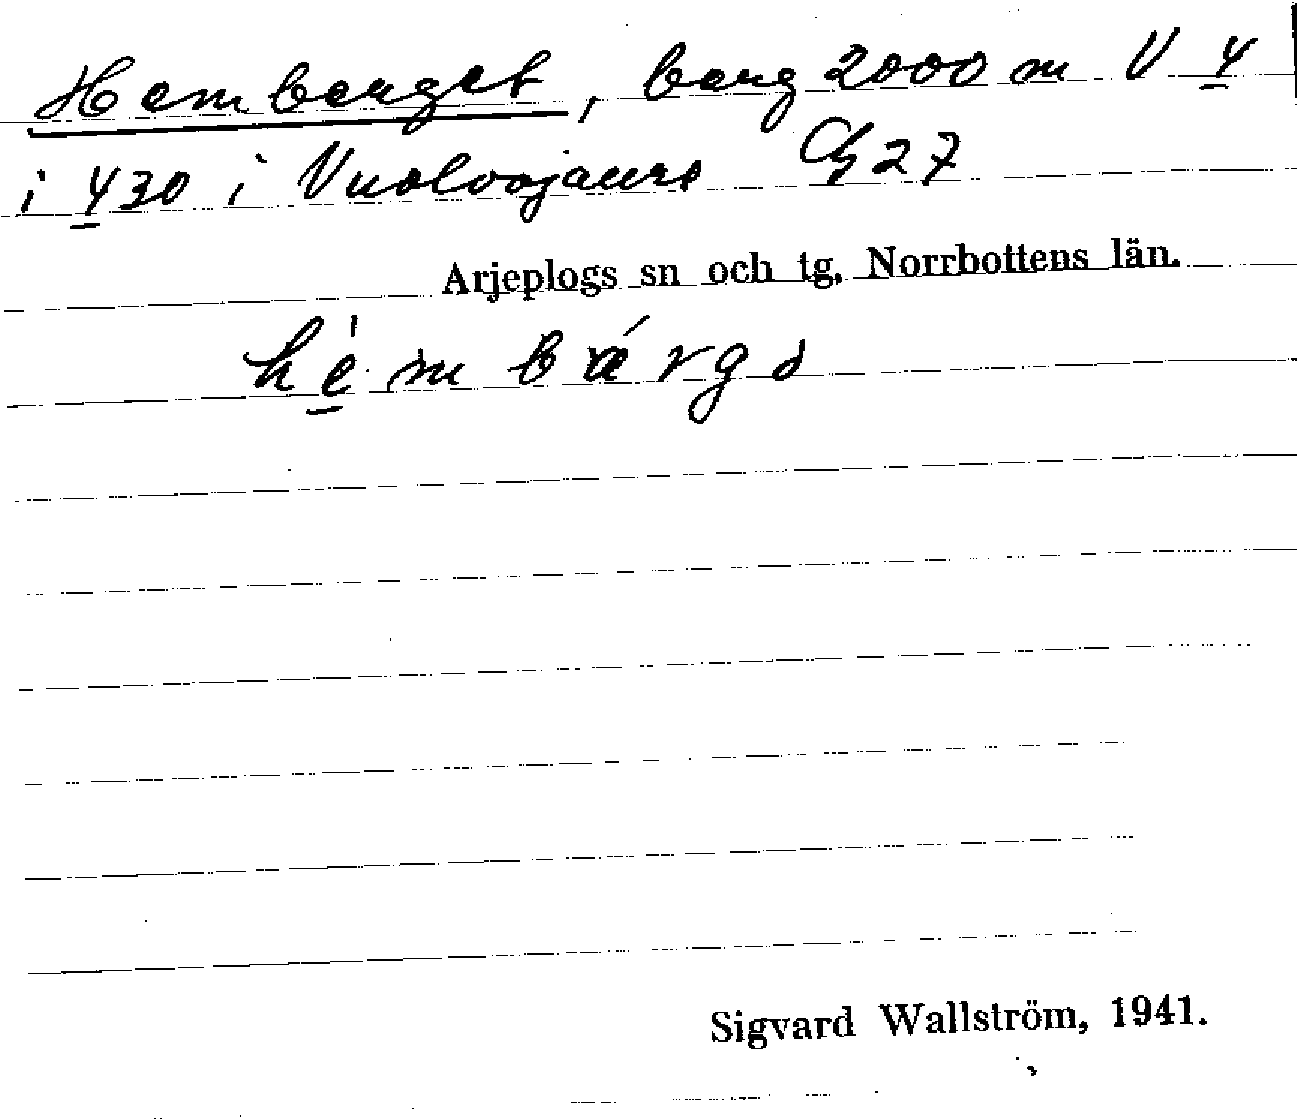 Hemberget, berg 2000 m V y
i y30 i Vuolvojaure G27
Arjeplogs sn och tg, Norrbottens län.
hèmbárgə
Sigvard Wallström, 1941.